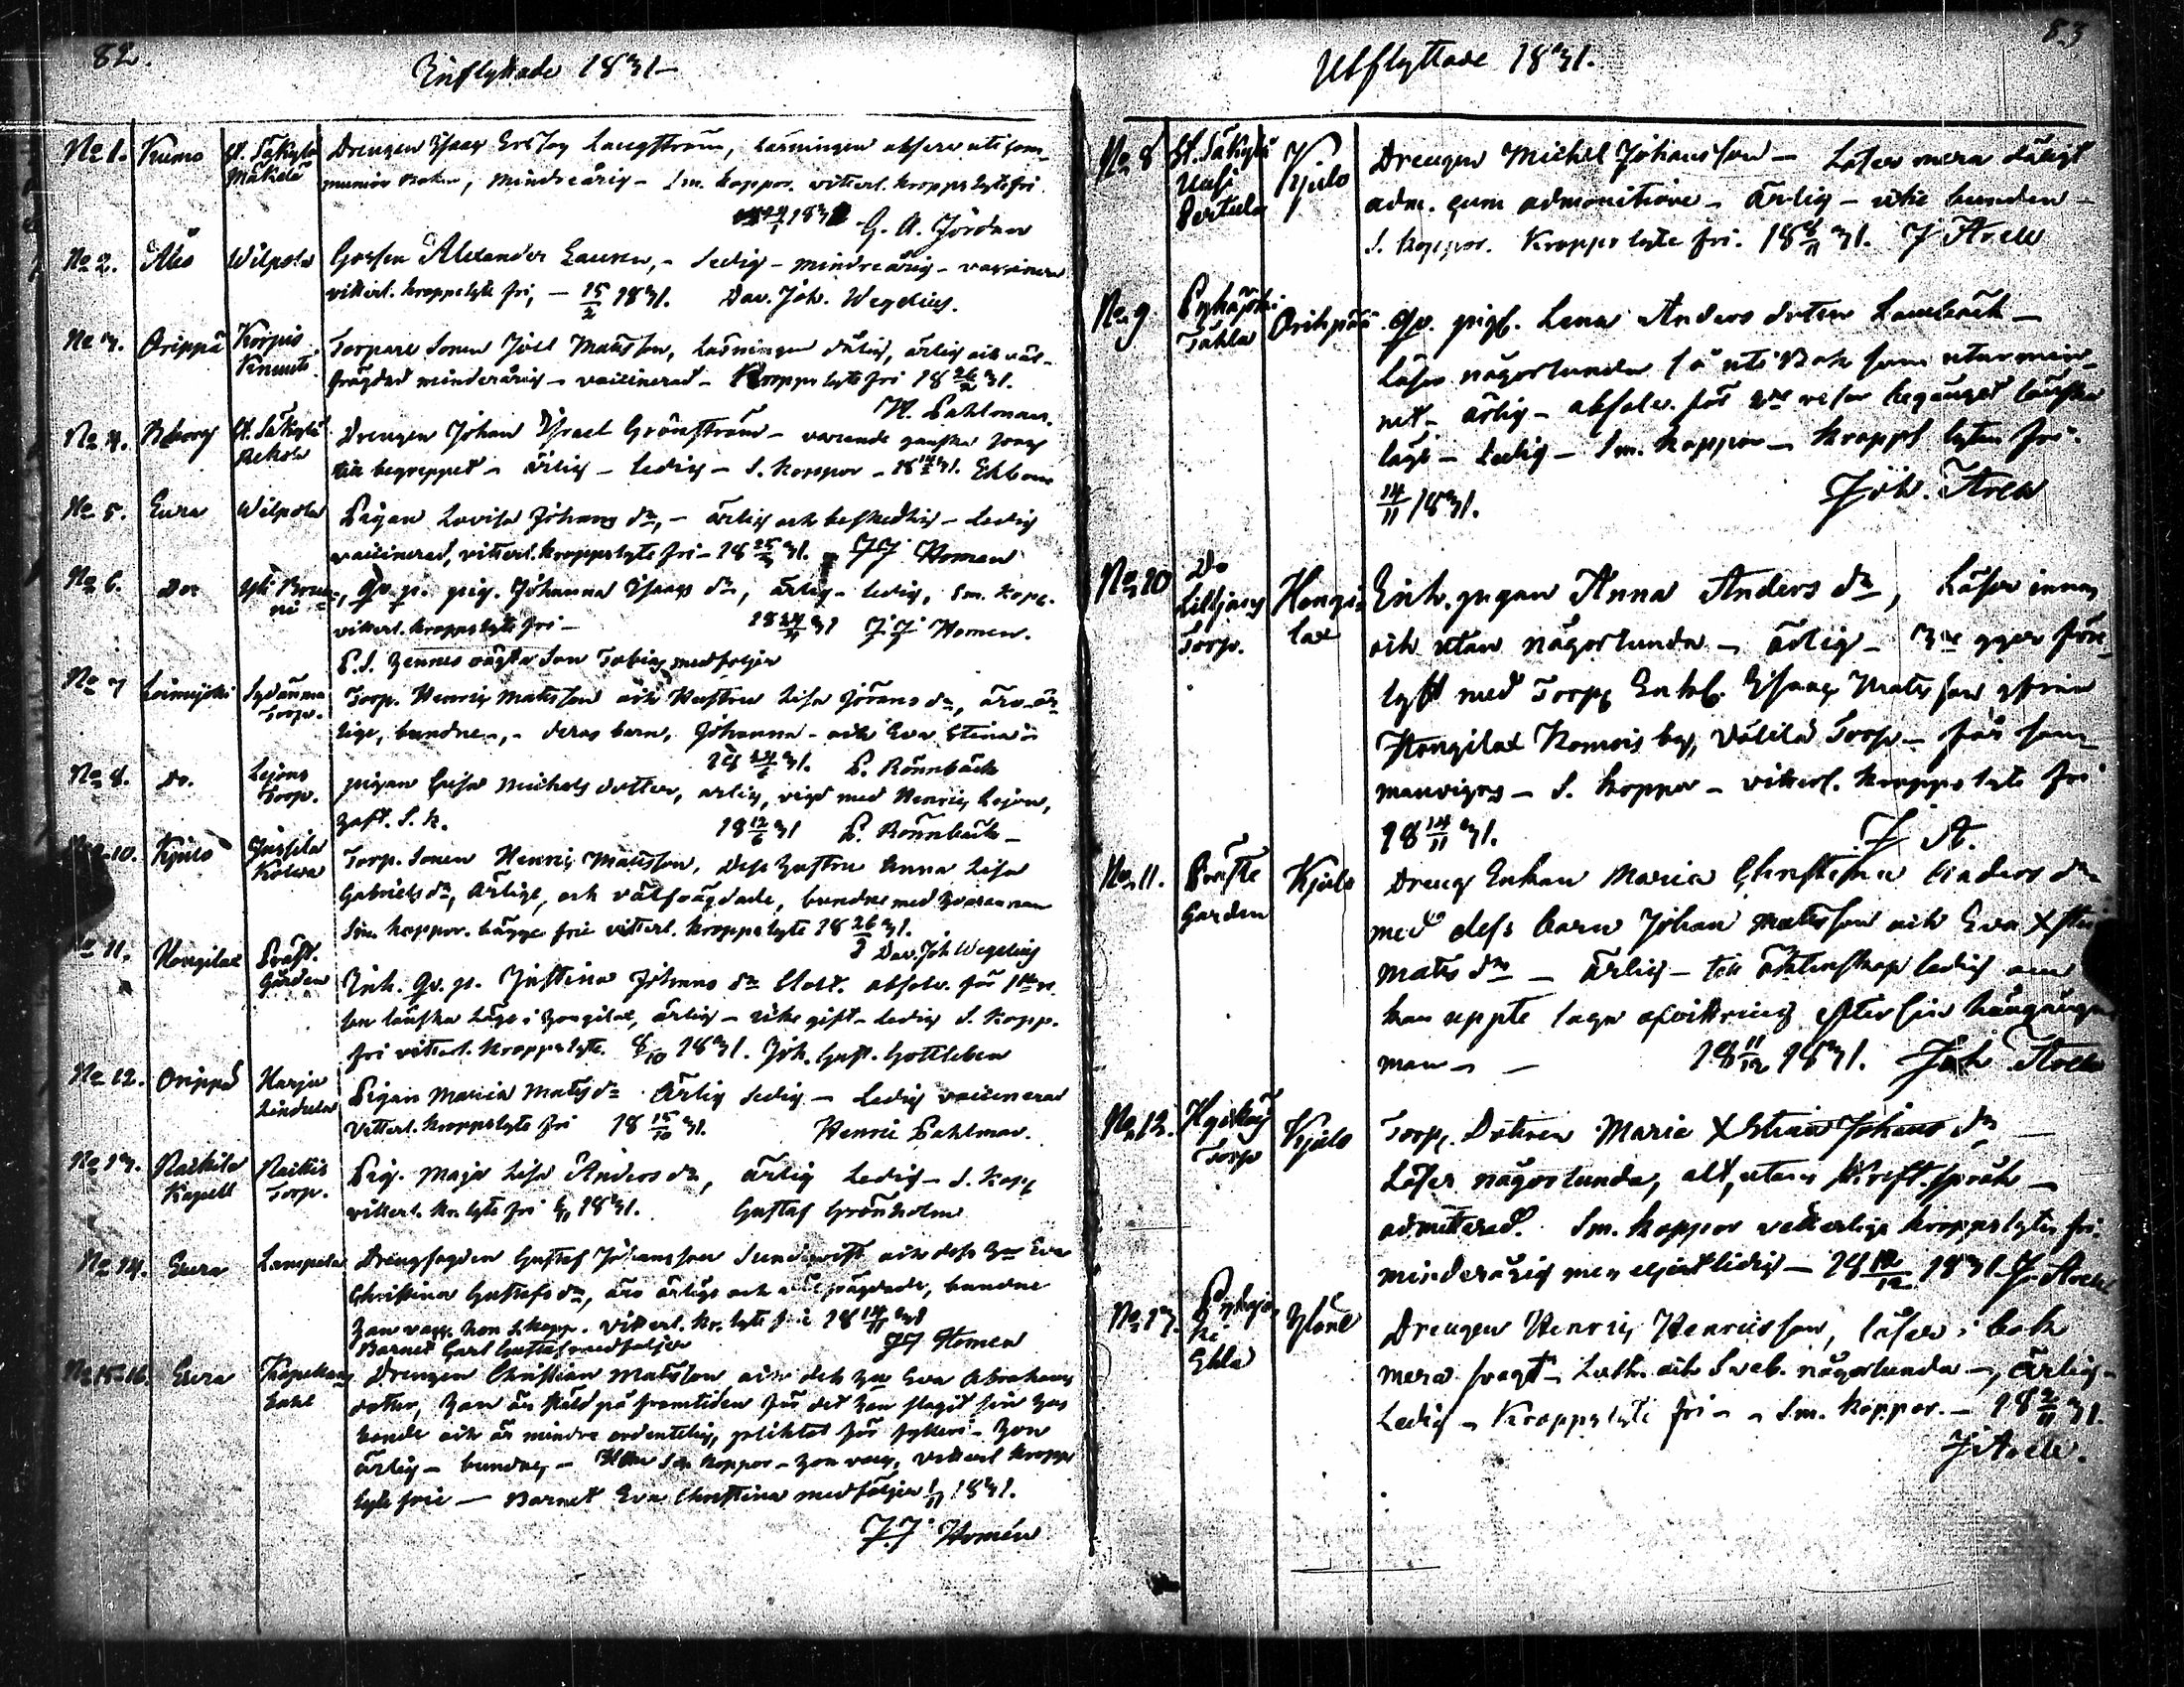 82.
Inflyttade 1831
No 1. Kumo St. Säkylä Mäkelä Drengen Isaac Ersson Langström, läsningen absolv. uti com-
munion boken, minderårig - Sm. koppor. vitterl. kroppslyte fri
G. A. Jördan
No 2. Åbo Wilpola Gossen Alexander Lauren, - ledig - minderårig - vaccinerad
vitterl. kroppslyte fri, - 15/2 1831. Dav. Joh. Wegelius.
No 3. Orippä Korpis Knuuti Torpare Sonen Joël Matsson, läsningen dålig, ärlig och väl-
frägdad minderårig - vaccinerad - Kroppslyte fri 18 26/2 31.
H. Pahlman.
No 4. Bborg St. Säkylä Drengen Johan Israel Grönström - varende ganska svag
till begreppet - ärlig - Ledig - S. koppor - 31. Ekbom
No 5. Eura Wilpola Pigan Lovisa Johans dr, - ärlig och beskedlig - Ledig
vaccinerad, vitterl. kroppslyte fri - 31. JJ Homen
No 6. Do Qv. p. pig. Johanna Isaacs dr, ärlig - ledig, Sm. kopp.
vitterl. kroppslyte fri - 31 J.J Homen.
P.S. Hennes oägta Son Tobias medföljer
No 7 Loimijoki Sydänma Torp. Torp. Henric Matsson och Hustru Lisa Görans dr, äro är-
lige, bundne -, - deras barn, Johanna - och Eva Stina
31. P. Rönnbäck
No 8. Do. Lejons Torp. pigan Caisa Michels dotter, ärlig, vigd med Henric Lejon,
haft. S. k. 18 12/6 31 P. Rönnbäck -
10. Kjulo Kolwa Torp. Sonen Henric Matsson, dess hustru Anna Lisa
Gabriels dr, ärlige, och välfrägdade, bundne med hvarannan
Sm. koppor. bägge frie vitterl. kroppslyte 18 26/ 31.
Dav. Joh Wegelius
No 11. Hongilax Präst. Gården Inh. Qv. p. Justina Johans dr absolv. för 1sta re-
san lönska läge i Hongilax, ärlig - icke gift - Ledig S. kopp.
fri vitterl. kroppslyte. 8/10 1831. Joh. Gust. Gottleben
No 12. Orippä Harju Pigan Maria Mats dr Ärlig Sedig - Ledig vaccinerad
Vitterl. kroppslyte fri 18 15/10 31. Henric Pahlman.
No 13. Kapell Torp. Pig. Maja Lisa Anders dr, ärlig Ledig - S. kopp
vitterl. kr. lyte fri 1831. Gustaf Grönholm
No 14. Eura Lampola Drengfogden Gustaf Johansson och dess hu Eva
Christina Gustafs dr, äro ärlige och välfrägdade, bundne
han vacc. hon S kopp. vitterl. kr. lyte frie 18 14/11 31
Barnet Carl Gustaf medföljer JJ Homen
No 15-16. Eura Drengen Christian Matsson och dess hu Eva Abrahams
dotter, han är stäld på framtiden för det han slagit sin hus
bonde och är mindre ordentelig, pliktat för fylleri. hon
ärlig - bundne, - Han Sm koppor - hon vacc, vitterl kropps
lyte frie - Barnet Eva Christina medföljer 1831.
J.J Homén
83
Utflyttade 1831.
No 8 St. Säkylä Uusi Pertula Kjulo Drengen Michel Johansson - Läser mera dåligt
adm. cum admonitione - Ärlig - icke bunden -
S. koppor. Kroppslyte fri. 18 8/11 31. J Arell
No. 9 Pyhäjoki Orihpää Qv. pig. Lena Anders dotter -
Läser någorlunda så uti Bok som utur min-
net - ärlig - absolv. för 2dre resan begånget lönska
läge - Ledig - Sm. koppor - kropps lyten fri.
14/11 1831. Joh. Arell
No 10 Do Torp. Hongi- lax Enh. pigan Anna Anders dr, Läser innan
och utan någorlunda - ärlig - 3ne ggr för-
lyst med Torp Enkl. Isaac Matsson ifrån
Hongilax Komois by, Välilä Torp - för sam-
manvigas - S. koppor - vitterl. kroppslyte fri
18 14/11 31. J A.
No. 11. Präste Garden Kjulo Dreng Enkan Maria Christina Anders dr
med dess barn Johan Matsson och Eva
Mats dr - ärlig - till äktenskap ledig om
hon uppte laga afvittring efter sin hängångne
man - - 18 11/12 1831. Joh Arell
No. 12. Torp Kjulo Torp. Dotren Maria Xstina Johans dr -
Läser någorlunda, alt, utom Skrift.språk -
admitterad. Sm. koppor vitterlige kroppslyte fri.
minderårig men eljest ledig - 1831 J. Arell
No. 13. Pyhäjoki Yläne Drengen Henric Henricsson, läser i bok
mera svagt - Luth. och Sveb. någorlunda -, Ärlig -
Ledig - Kroppslyte fri - , Sm. koppor. - 18 2/11 31.
J Arell.